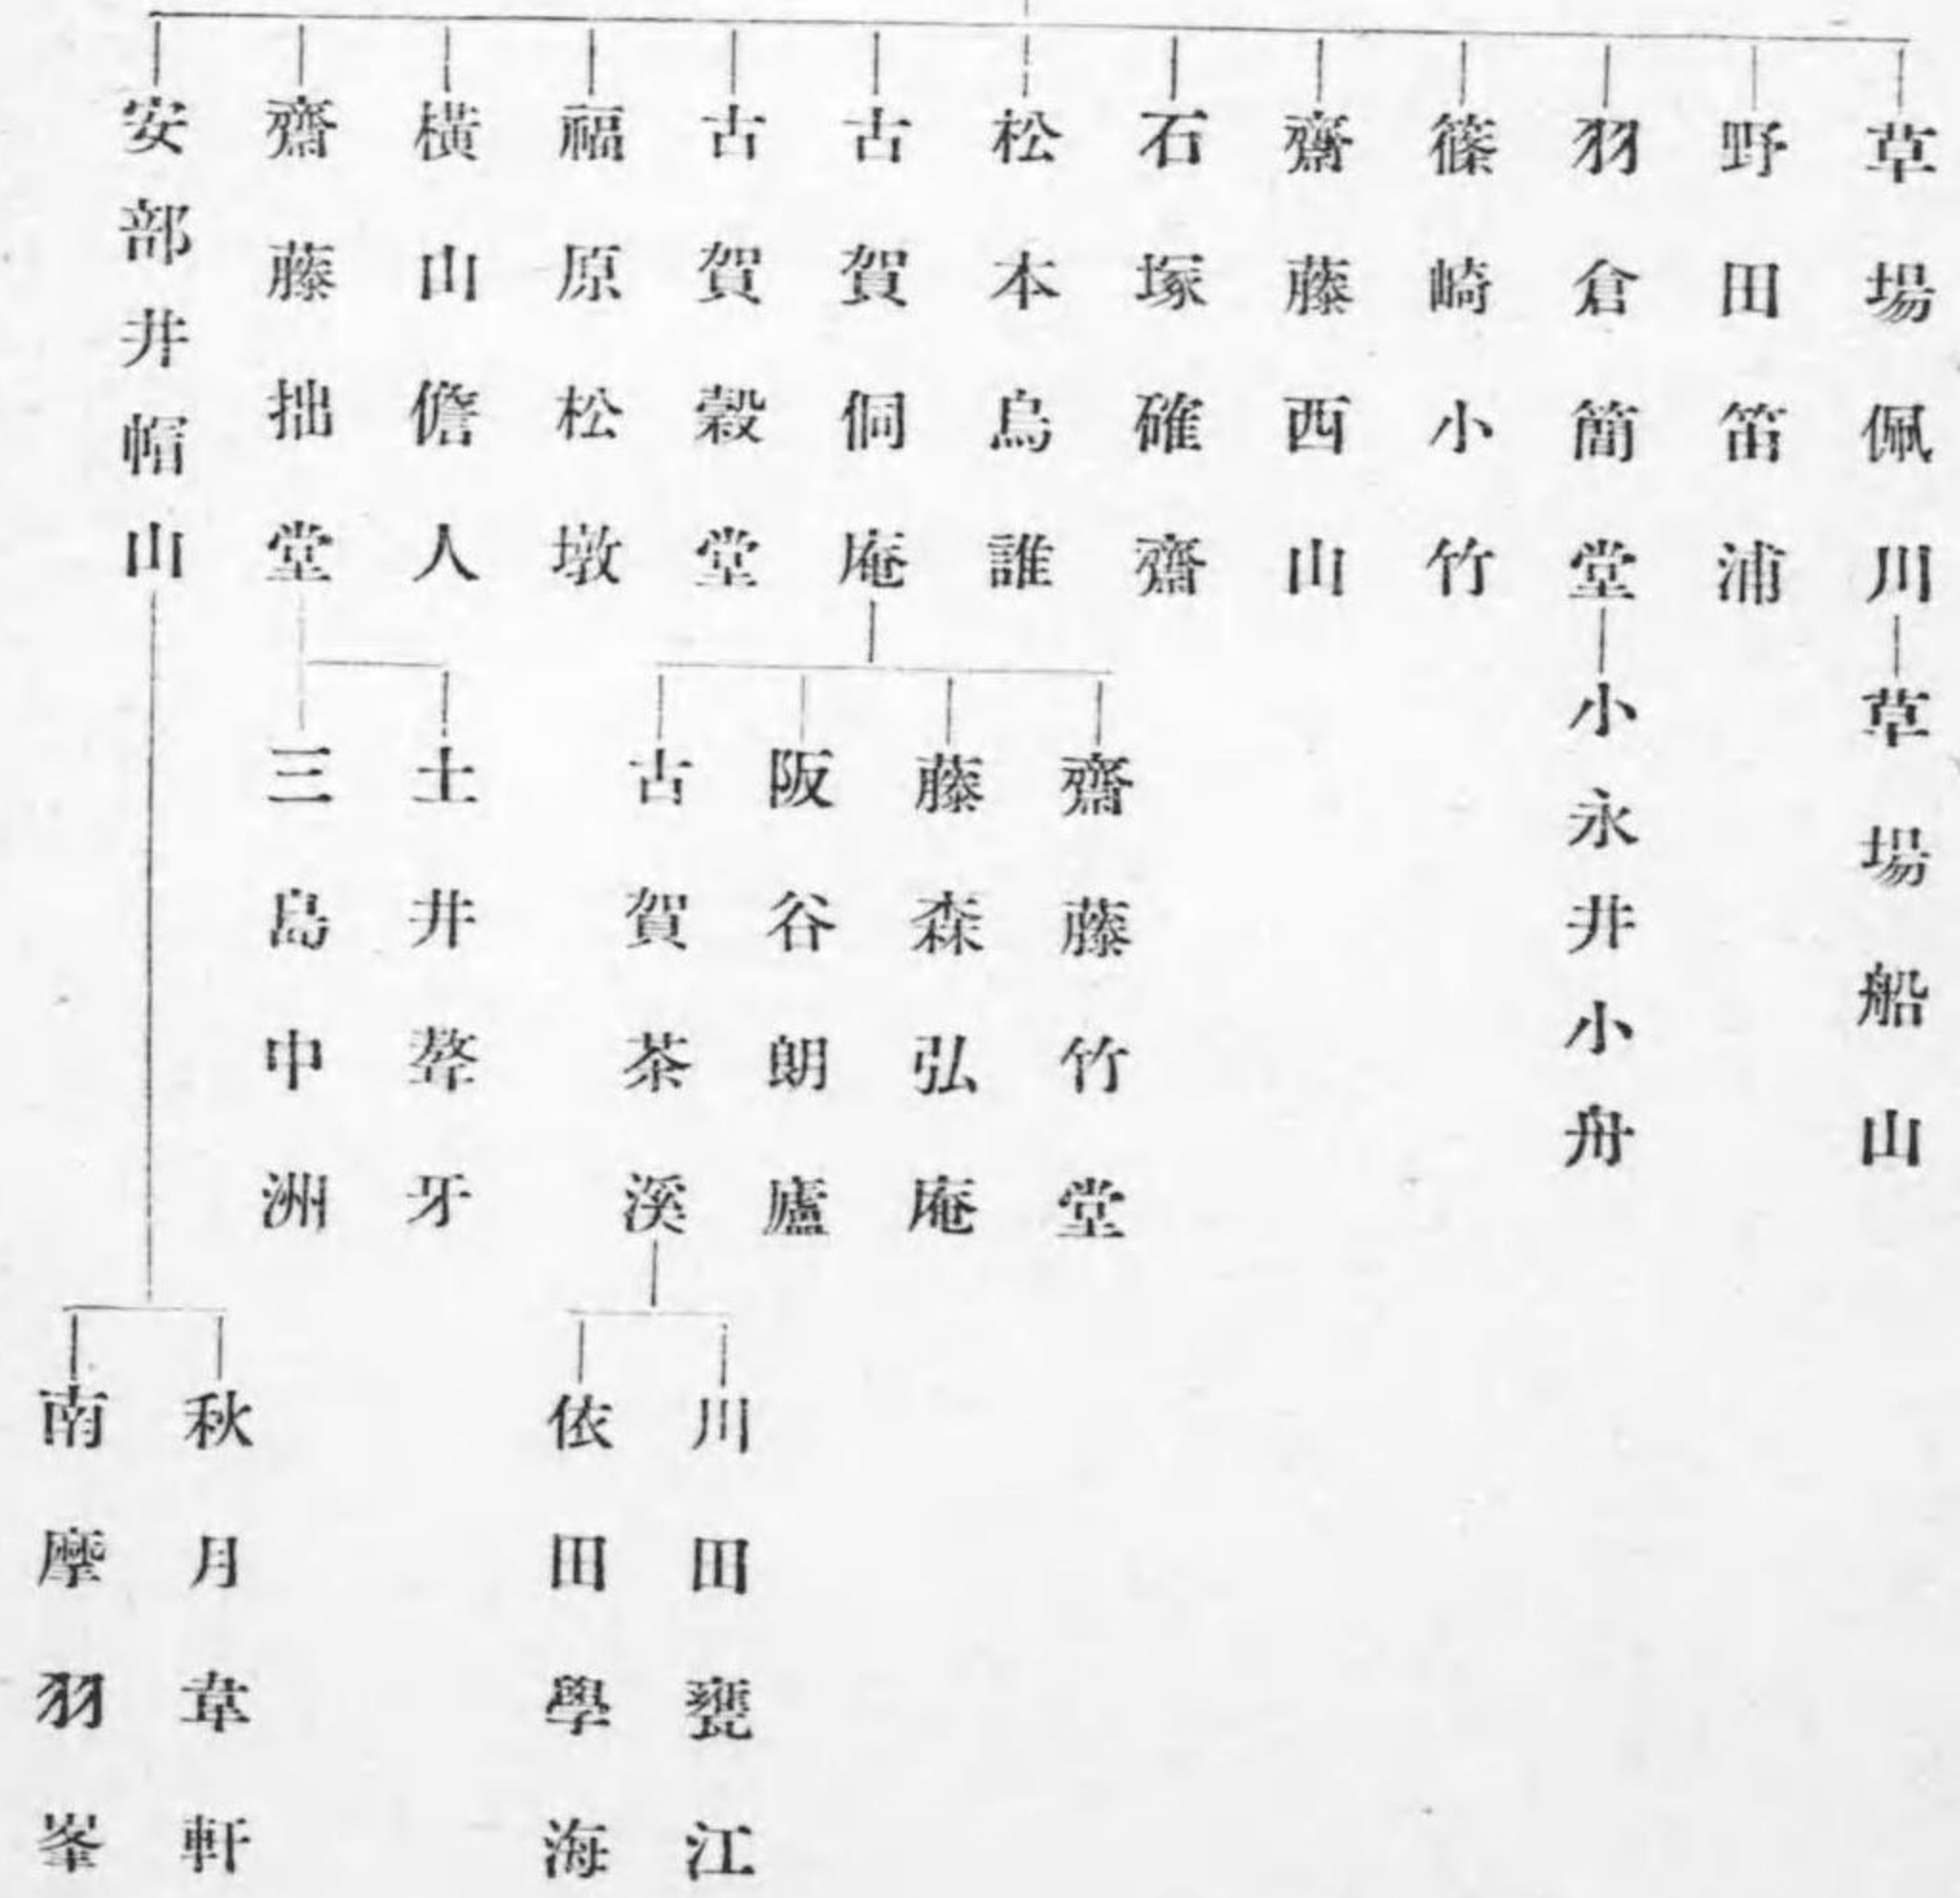 草場佩川
草場船山
野田笛浦
羽倉簡堂
小永井小舟
篠崎小竹
齋藤西山
石塚確齋
松本烏誰
古賀侗庵
齋藤竹堂
藤森弘庵
阪谷朗廬
古賀茶溪
川田甕江
依田學海
古賀穀堂
福原松墩
橫山儋人
齋藤拙堂
土井聱牙
三島中洲
安部井帽山
秋月韋軒
南摩羽峯